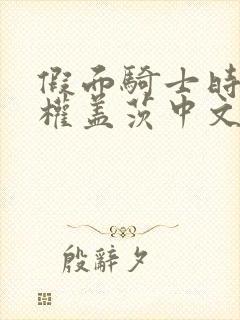 假面騎士時
權盖茨中文
殷辭夕